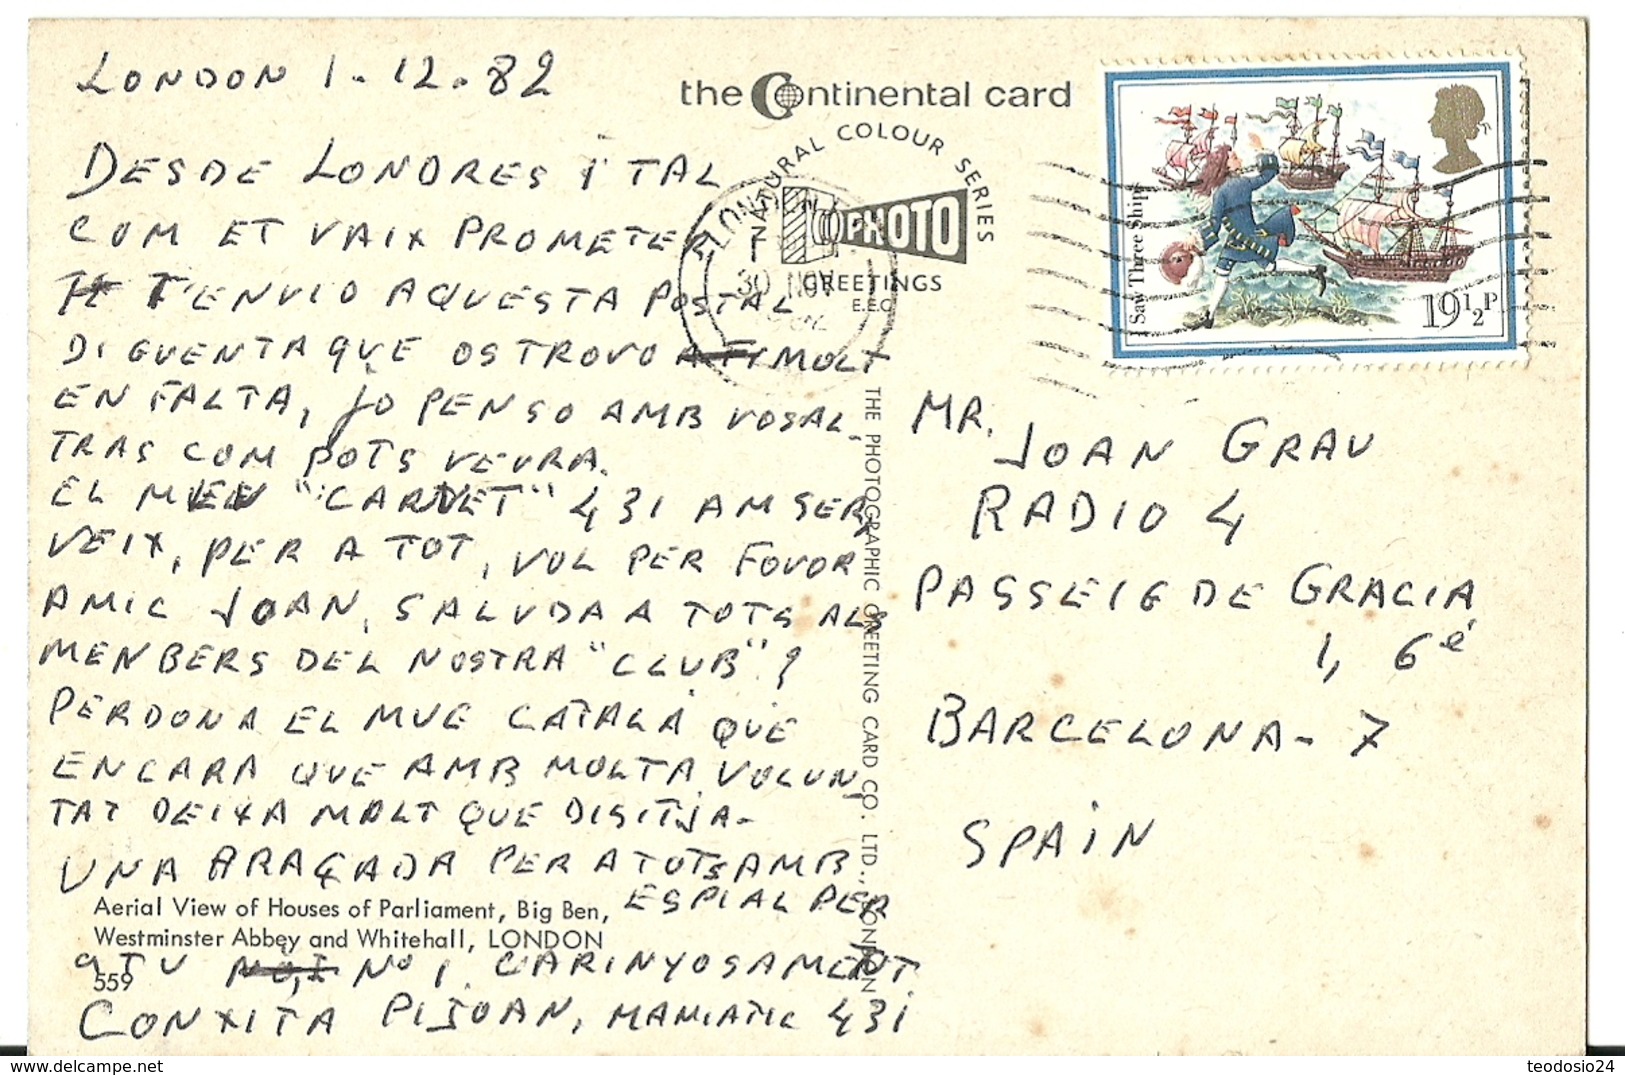 LONDON 1-12-82
DESDE LONDRES I TAL
COM ET VAIX PROMETER
T'ENVIO AQUESTA POSTAL
DIGUENTA QUE OS TROVO MOLT
EN FALTA, JO PENSO AMB VOSAL-
TRAS COM POTS VEURA.
EL MEU "CARNET" 431 AM SER-
VEIX, PER A TOT, VOL PER FOVOR
AMIC JOAN, SALUDA A TOTS ALS
MENBERS DEL NOSTRA "CLUB" ?
PERDONA EL MUE CATALÀ QUE
ENCARA QUE AMB MOLTA VOLUN,
TAT DEIXA MOLT QUE DISITJA-
UNA ARAÇADA PER A TOTS AMB
ESPIAL PER
A TU Nº 1. CARINYOSAMENT
CONXITA PIJOAN, MANIATIC 431
the Continental card
NATURAL COLOUR SERIES
PHOTO
GREETINGS
E.E.C.
30 NOV
I Saw Three Ships
19½P
THE PHOTOGRAPHIC GREETING CARD CO. LTD., LONDON
MR. JOAN GRAU
RADIO 4
PASSEIG DE GRACIA
1, 6è
BARCELONA - 7
SPAIN
Aerial View of Houses of Parliament, Big Ben,
Westminster Abbey and Whitehall, LONDON
559
teodosio24